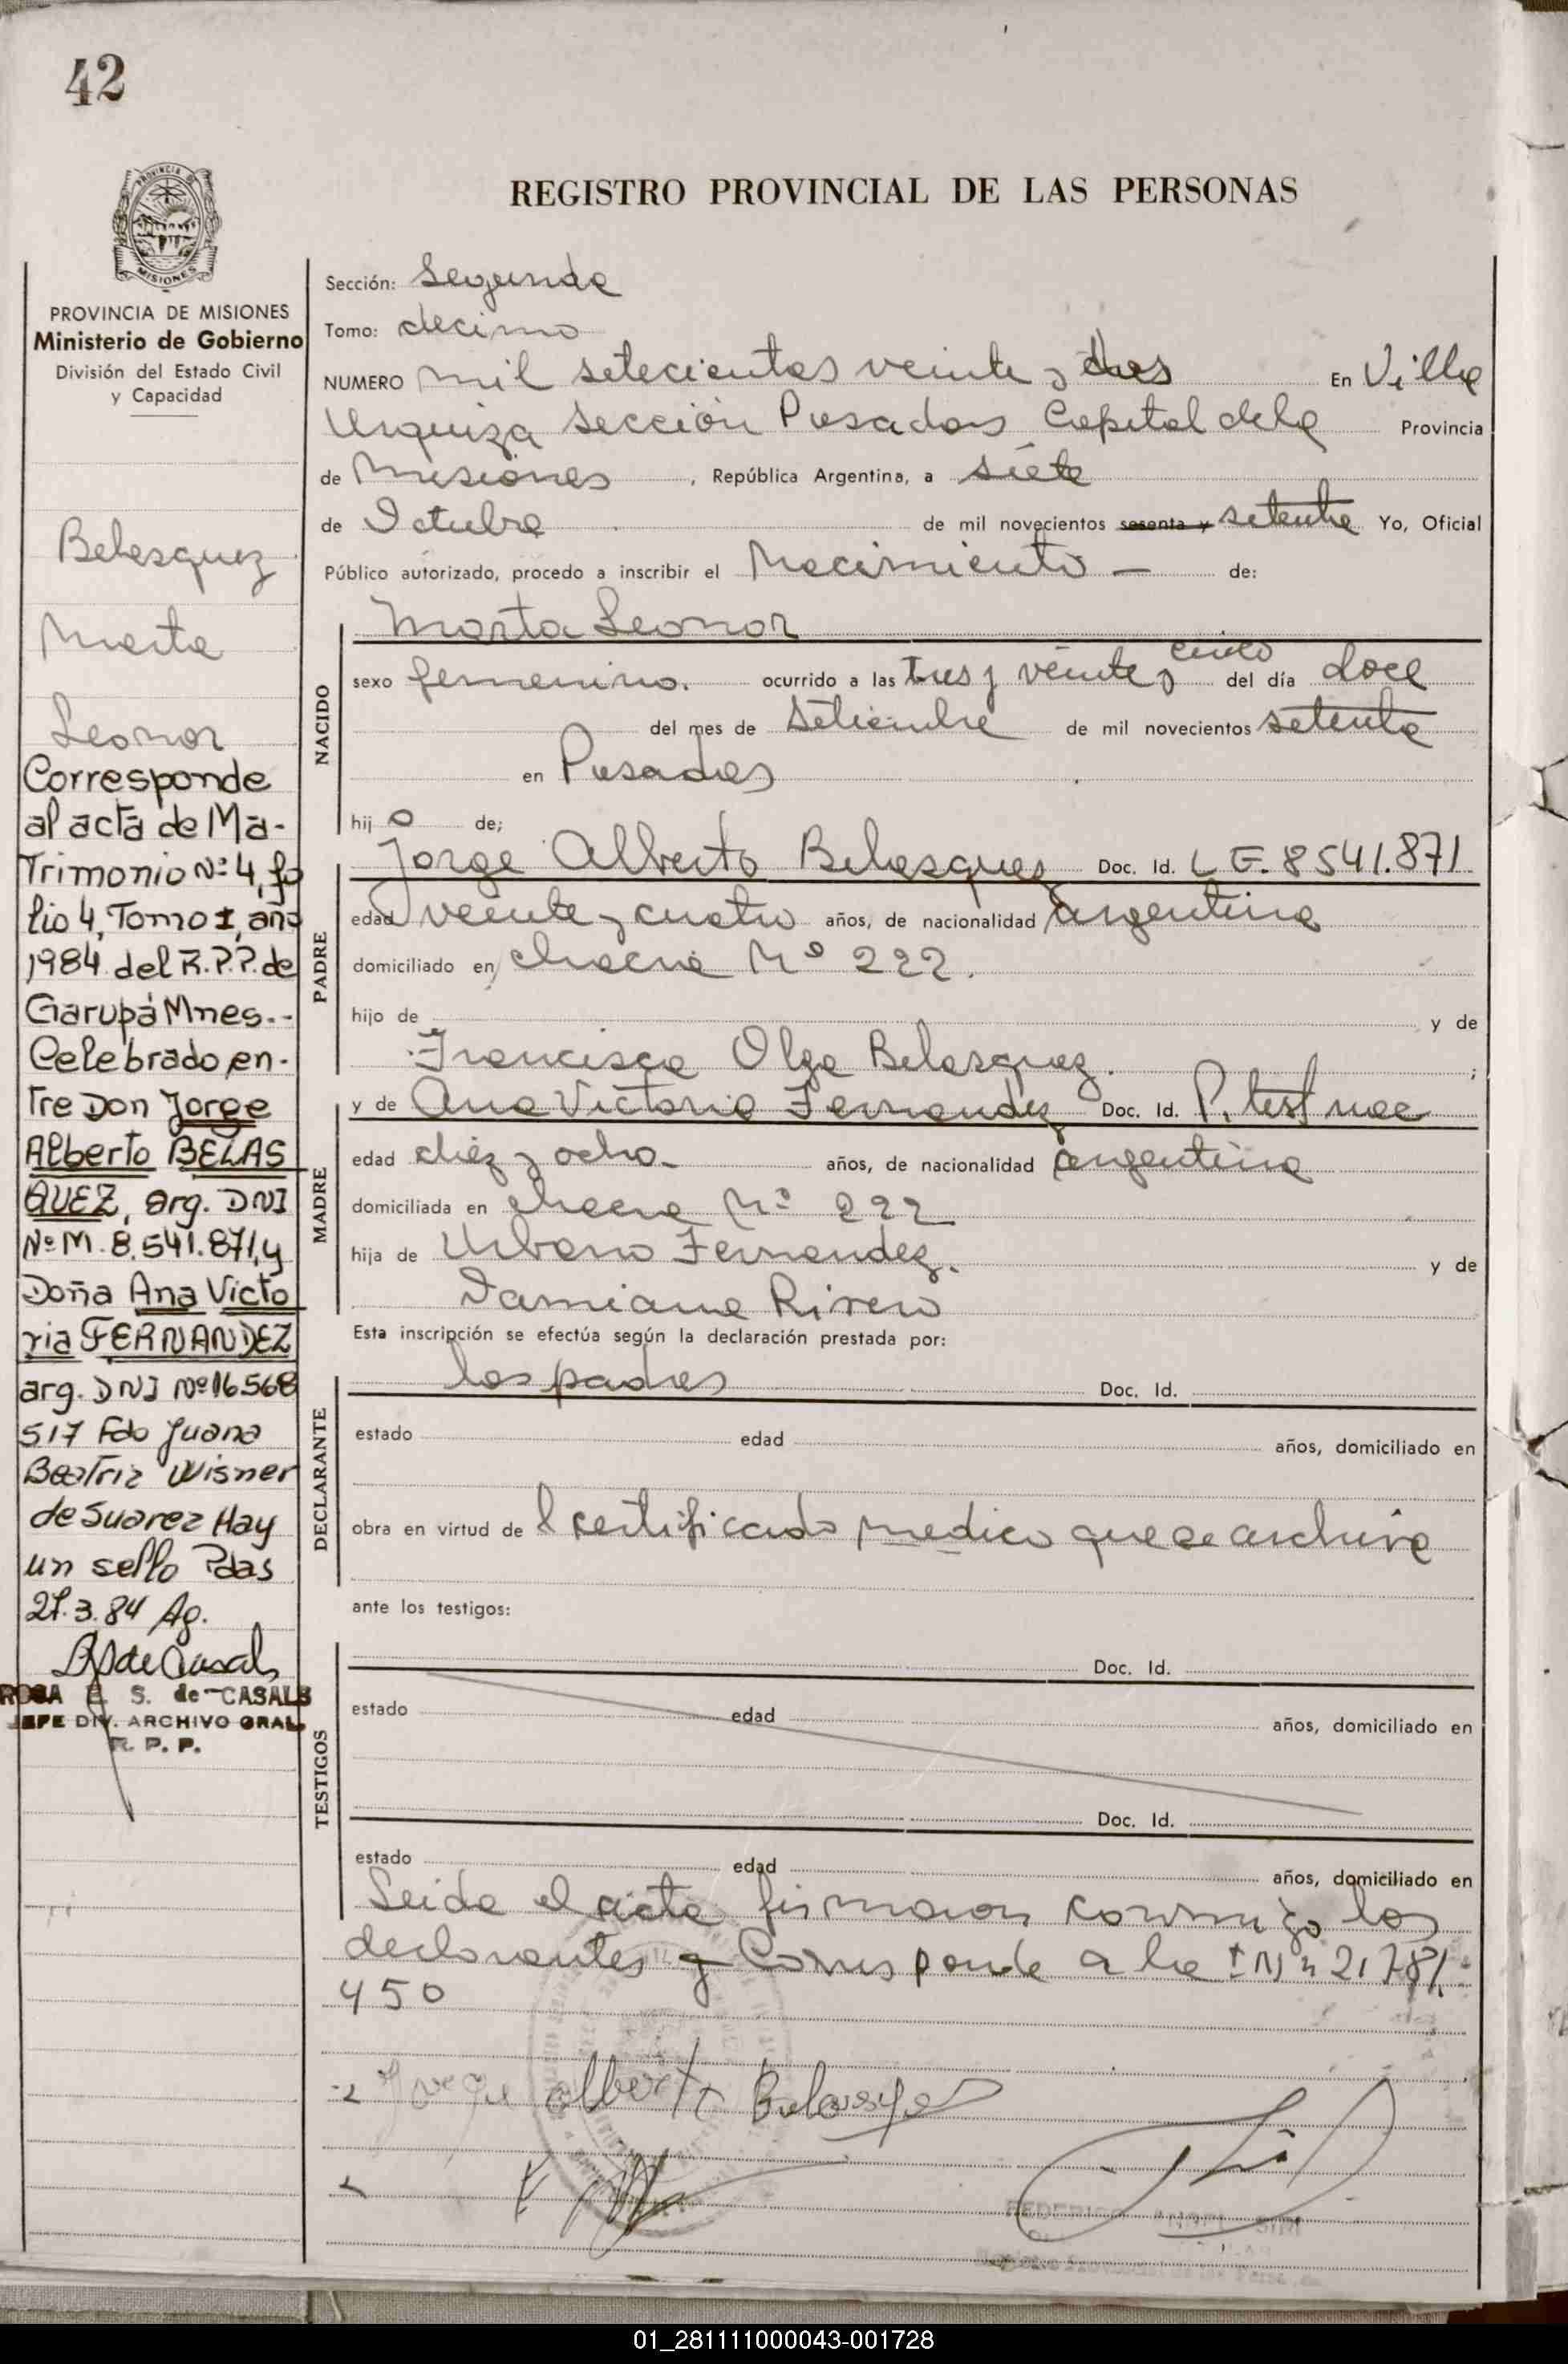 42
PROVINCIA DE MISIONES
Ministerio de Gobierno
División del Estado Civil
y Capacidad
Belesquez
Marta
Leonor
Corresponde
al acta de Ma-
Trimonio Nº 4, fo
lio 4, Tomo I, año
1984 del R.P.P. de
Garupá Mnes.-
Celebrado en-
Tre Don Jorge
Alberto BELAS
QUEZ, arg. DNI
Nº M. 8.541.871, y
Doña Ana Victo
ria FERNANDEZ
arg. DNI Nº 16.568
517 Fdo Juana
Beatriz Wisner
de Suarez Hay
un sello Pdas
27.3.84 Ag.
ROSA E. S. de CASALS
JEFE DIV. ARCHIVO GRAL.
R. P. P.
REGISTRO PROVINCIAL DE LAS PERSONAS
Sección: Segunda
Tomo: decimo
NUMERO mil setecientos veinte y dos En Villa
Urquiza Sección Posadas Capital de la Provincia
de Misiones, República Argentina, a siete
de Octubre de mil novecientos sesenta y setenta Yo, Oficial
Público autorizado, procedo a inscribir el Nacimiento — de:
NACIDO
Marta Leonor
sexo femenino. ocurrido a las tres y veinte y cinco del día doce
del mes de Setiembre de mil novecientos setenta
en Posadas
hij a de;
PADRE
Jorge Alberto Belasquez Doc. Id. L E. 8541.871
edad veinte y cuatro años, de nacionalidad argentina
domiciliado en chacra Nº 222.
hijo de y de
Francisca Olga Belasquez. ;
MADRE
y de Ana Victoria Fernandez Doc. Id. P. test nac
edad diez y ocho - años, de nacionalidad argentina
domiciliada en chacra Nº 222
hija de Urbano Fernandez. y de
Damiana Rivero
Esta inscripción se efectúa según la declaración prestada por:
DECLARANTE
los padres Doc. Id.
estado edad años, domiciliado en
obra en virtud de l certificado medico que se archiva
ante los testigos:
TESTIGOS
Doc. Id.
estado edad años, domiciliado en
Doc. Id.
estado edad años, domiciliado en
Leida el acta firmaron conmigo los
declarantes y Corresponde a la 21.781.
450
Jorge Alberto Belasquez
01_281111000043-001728